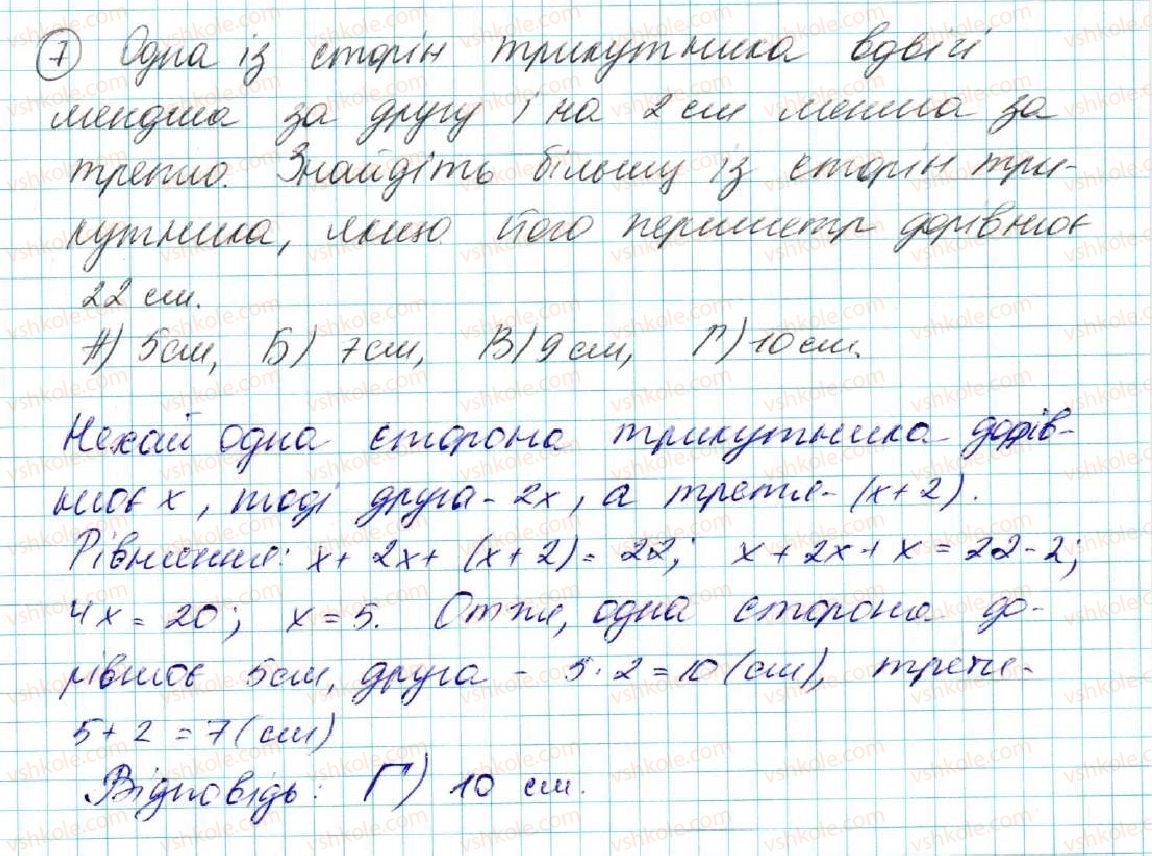 7 Одна із сторін трикутника вдвічі
менша за другу і на 2 см менша за
третю. Знайдіть більшу із сторін три-
кутника, якщо його периметр дорівнює
22 см.
А) 5 см, Б) 7 см, В) 9 см, Г) 10 см.
Нехай одна сторона трикутника дорів-
нює x, тоді друга - 2x, а третя - (x + 2).
Рівняння: x + 2x + (x + 2) = 22; x + 2x + x = 22 - 2;
4x = 20; x = 5. Отже, одна сторона до-
рівнює 5 см, друга - 5 · 2 = 10 (см), третя -
5 + 2 = 7 (см)
Відповідь: Г) 10 см.